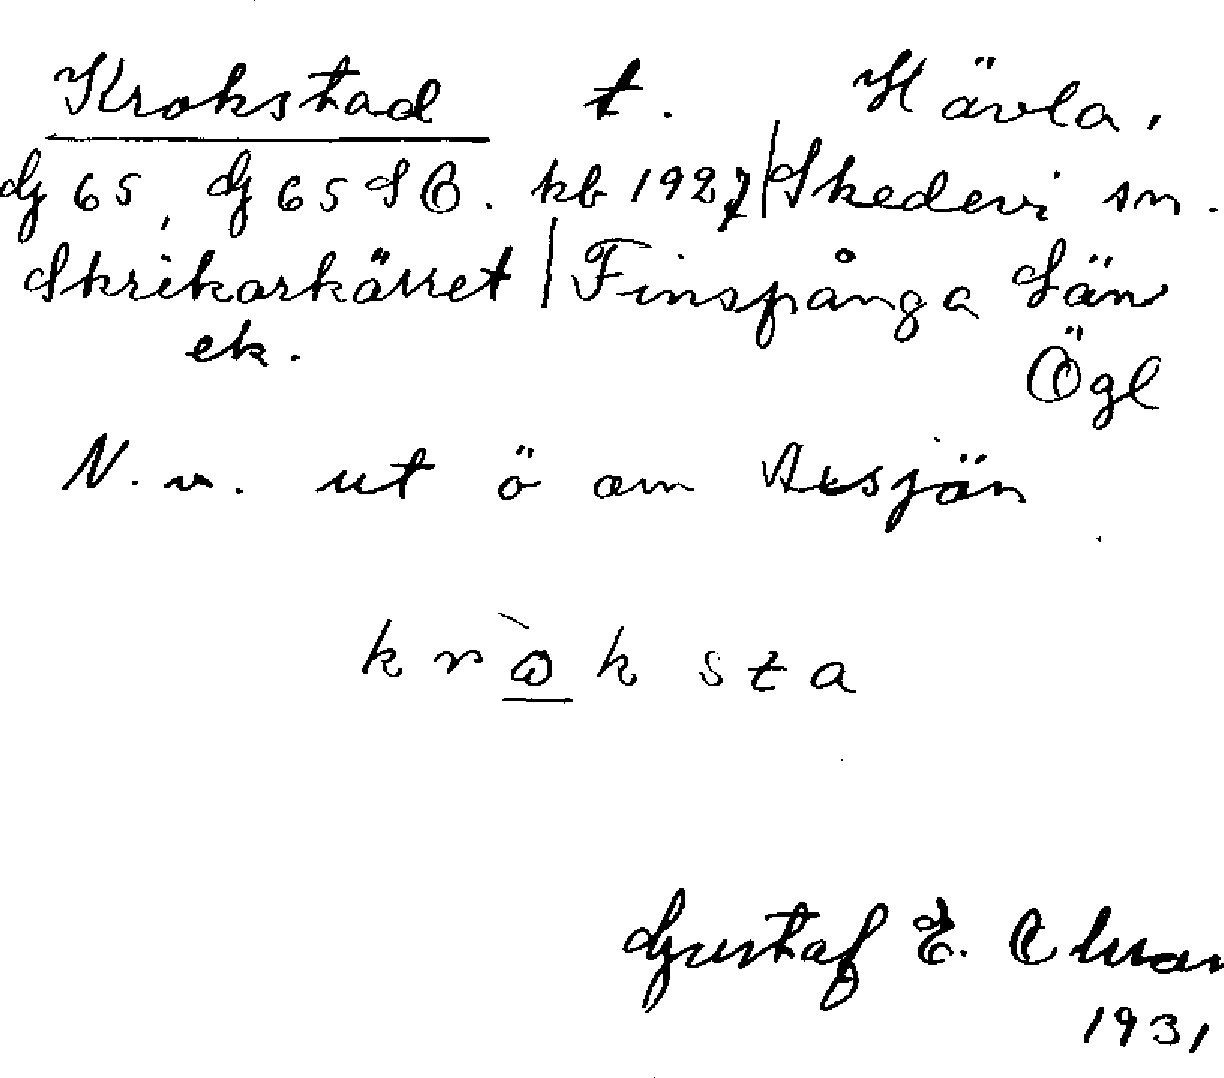 Krokstad t. Hävla,
G 65, G 65 SO. kb 1927 | Skedevi sn.
Skrikarkärret | Finspånga Län
ek. Ögl
N. v. ut ö om sjön
k r ò k s t a
Gustaf E.
1931